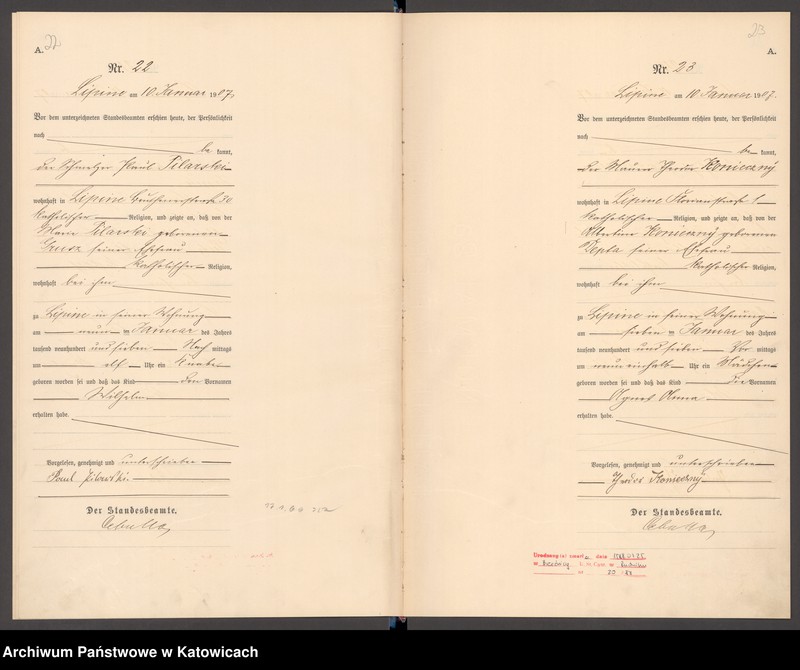 22
A.
Nr. 22
Lipine am 10. Januar 1907.
Vor dem unterzeichneten Standesbeamten erschien heute, der Persönlichkeit
nach
be kannt,
der Schweizer Paul Pilarski
wohnhaft in Lipine
Katholischer Religion, und zeigte an, daß von der
Marie Pilarski geborenen
seiner Ehefrau
Katholischer Religion,
wohnhaft bei ihm
zu Lipine in seiner Wohnung
am neun ten Januar des Jahres
tausend neunhundert und sieben Nach mittags
um elf Uhr ein Knabe
geboren worden sei und daß das Kind den Vornamen
Wilhelm
erhalten habe.
Vorgelesen, genehmigt und unterschrieben
Paul
Der Standesbeamte.
Cebulla
23
A.
Nr. 23
Lipine am 10. Januar 1907.
Vor dem unterzeichneten Standesbeamten erschien heute, der Persönlichkeit
nach
be kannt,
der Maurer Theodor Konieczny
wohnhaft in Lipine Florianstraße 1
Katholischer Religion, und zeigte an, daß von der
Albertine Konieczny geborenen
Depta seiner Ehefrau
Katholischer Religion,
wohnhaft bei ihm
zu Lipine in seiner Wohnung
am sieben ten Januar des Jahres
tausend neunhundert und sieben Vor mittags
um neuneinhalb Uhr ein Mädchen
geboren worden sei und daß das Kind die Vornamen
Agnes Anna
erhalten habe.
Vorgelesen, genehmigt und unterschrieben
Theodor Konieczny
Der Standesbeamte.
Cebulla
Archiwum Państwowe w Katowicach